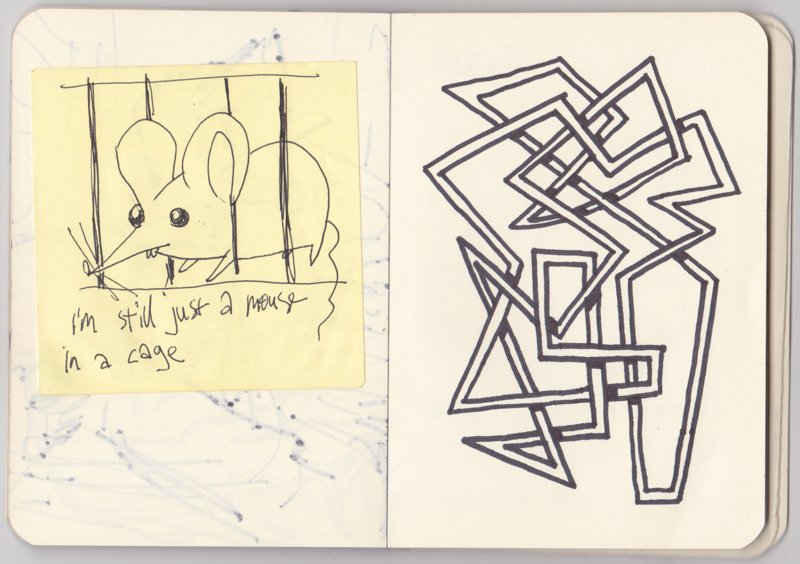 i'm still just a mouse
in a cage